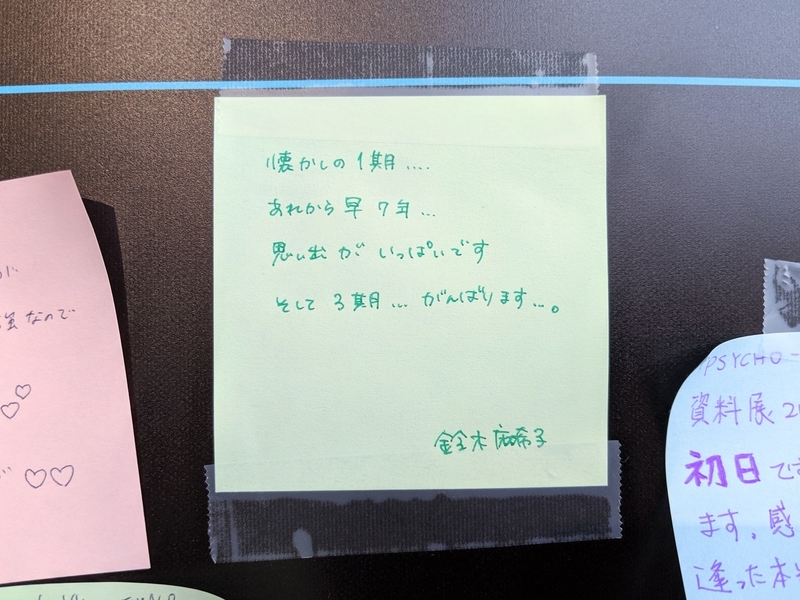 懐かしの1期....
あれから早7年...
思い出がいっぱいです
そして3期... がんばります...。
鈴木麻希子
なので
♡♡
♡♡
PSYCHO-
資料展2
初日です
ます。感
逢った本